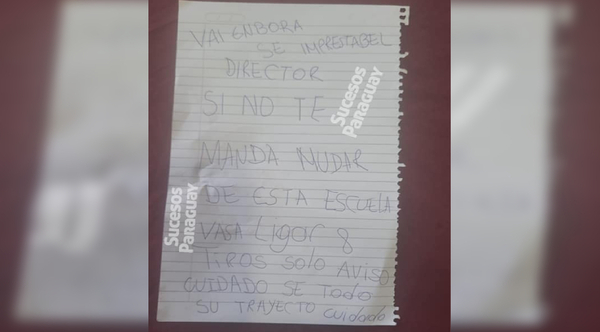 VAI ENBORA
SE IMPRESTABEL
DIRECTOR
SI NO TE
MANDA MUDAR
DE ESTA ESCUELA
VASA LIGOR 8
TIROS SOLO AVISO
CUIDADO SE TODO
SU TRAYECTO CUIDADO
Sucesos
Paraguay
Sucesos
Paraguay